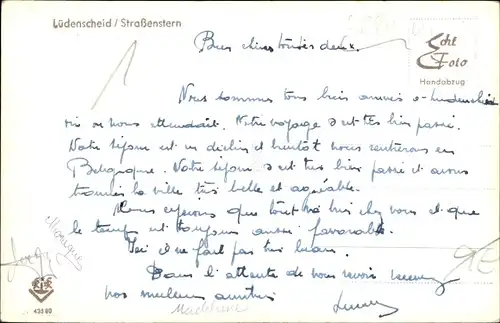 Lüdenscheid / Straßenstern
Echt
Foto
Handabzug
Bien chères toutes deux.
Nous sommes tous bien arrivés à Ludenscheid
où on nous attendait. Notre voyage s'est très bien passé.
Notre séjour est en déclin et bientôt nous rentrerons en
Belgique. Notre séjour s'est très bien passé et avons
trouvés la ville très belle et agréable.
Nous espérons que tout va bien chez vous et que
le temps est toujours aussi favorable.
Ici il ne fait pas très beau.
Dans l'attente de vous revoir recevez
nos meilleurs amitiés
Monique
Madeleine
43580